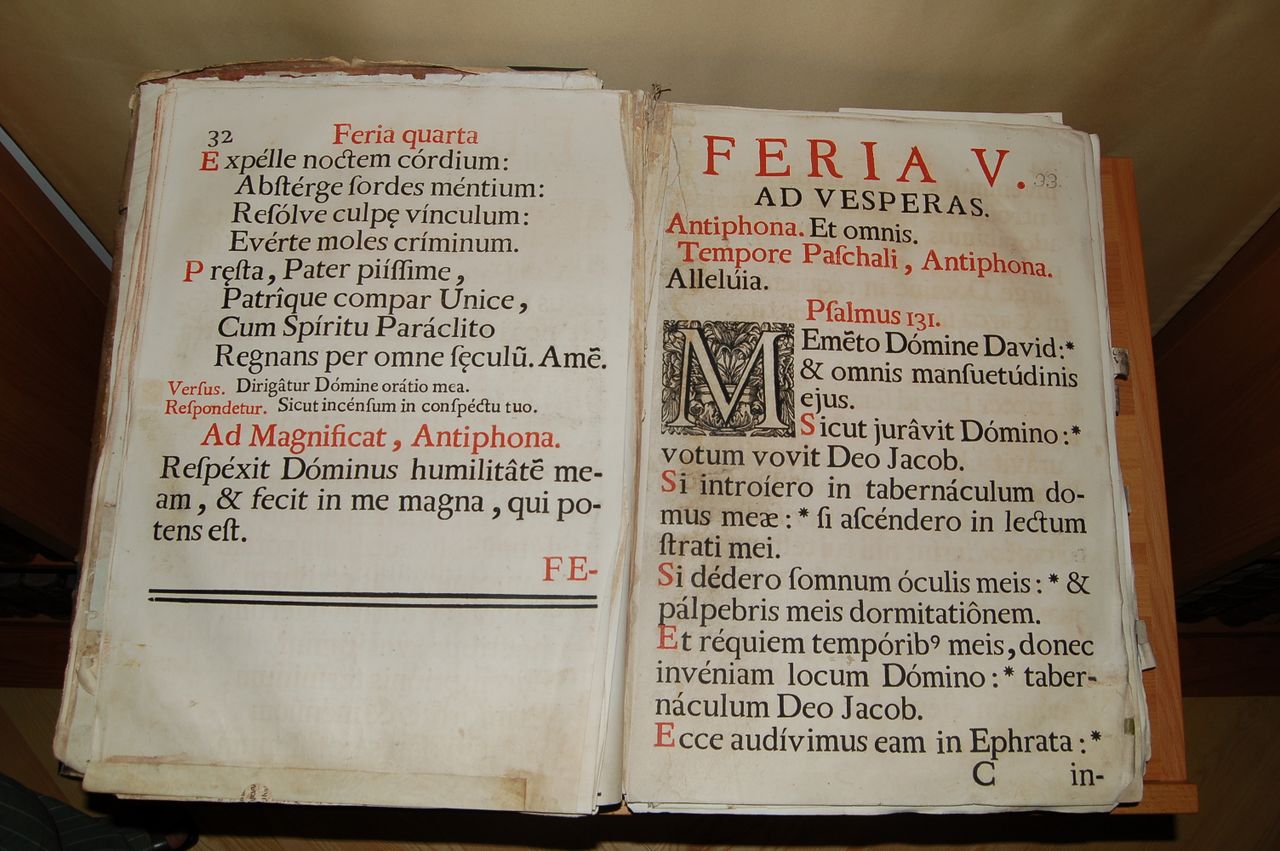 32 Feria quarta
Expélle noctem córdium:
Abſtérge ſordes méntium:
Reſólve culpę vínculum:
Evérte moles críminum.
Pręſta, Pater piíſſime,
Patrîque compar Unice,
Cum Spíritu Paráclito
Regnans per omne ſęculũ. Amẽ.
Verſus. Dirigâtur Dómine orátio mea.
Reſpondetur. Sicut incénſum in conſpéctu tuo.
Ad Magnificat, Antiphona.
Reſpéxit Dóminus humilitâtẽ me-
am, & fecit in me magna, qui po-
tens eſt.
FE-
FERIA V. 33.
AD VESPERAS.
Antiphona. Et omnis.
Tempore Paſchali, Antiphona.
Allelúia.
Pſalmus 131.
MEmẽto Dómine David:*
& omnis manſuetúdinis
ejus.
Sicut jurâvit Dómino:*
votum vovit Deo Jacob.
Si introíero in tabernáculum do-
mus meæ:* ſi aſcéndero in lectum
ſtrati mei.
Si dédero ſomnum óculis meis:* &
pálpebris meis dormitatiônem.
Et réquiem tempóribꝰ meis, donec
invéniam locum Dómino:* taber-
náculum Deo Jacob.
Ecce audívimus eam in Ephrata:*
C in-